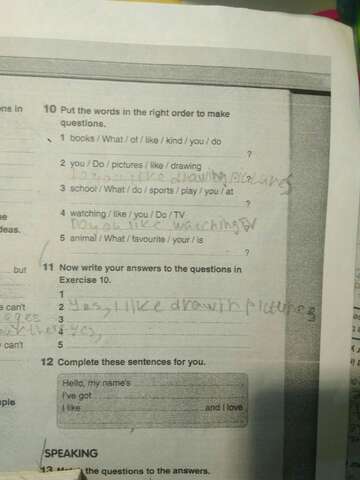 ns in
10 Put the words in the right order to make
questions.
1 books / What / of / like / kind / you / do
?
2 you / Do / pictures / like / drawing
like drawing pictures
3 school / What / do / sports / play / you / at
?
4 watching / like / you / Do / TV
like watching TV
5 animal / What / favourite / your / is
?
deas.
but
11 Now write your answers to the questions in
Exercise 10.
1
e can't
2 Yes, I like drawin pictures
3
4 Yes,
y can't
5
12 Complete these sentences for you.
Hello, my name's
I've got
I like and I love
ple
SPEAKING
13 the questions to the answers.